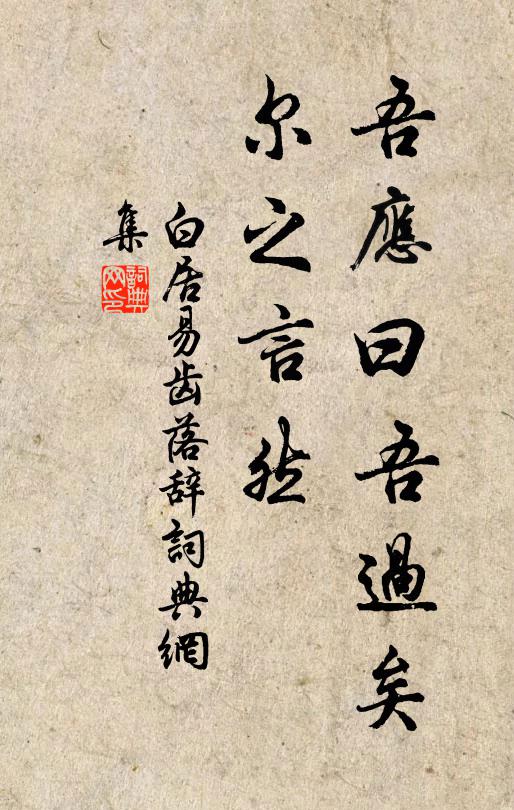 吾應曰吾過矣
尔之言然
白居易齿落辞詞典網
集
詞典
网印